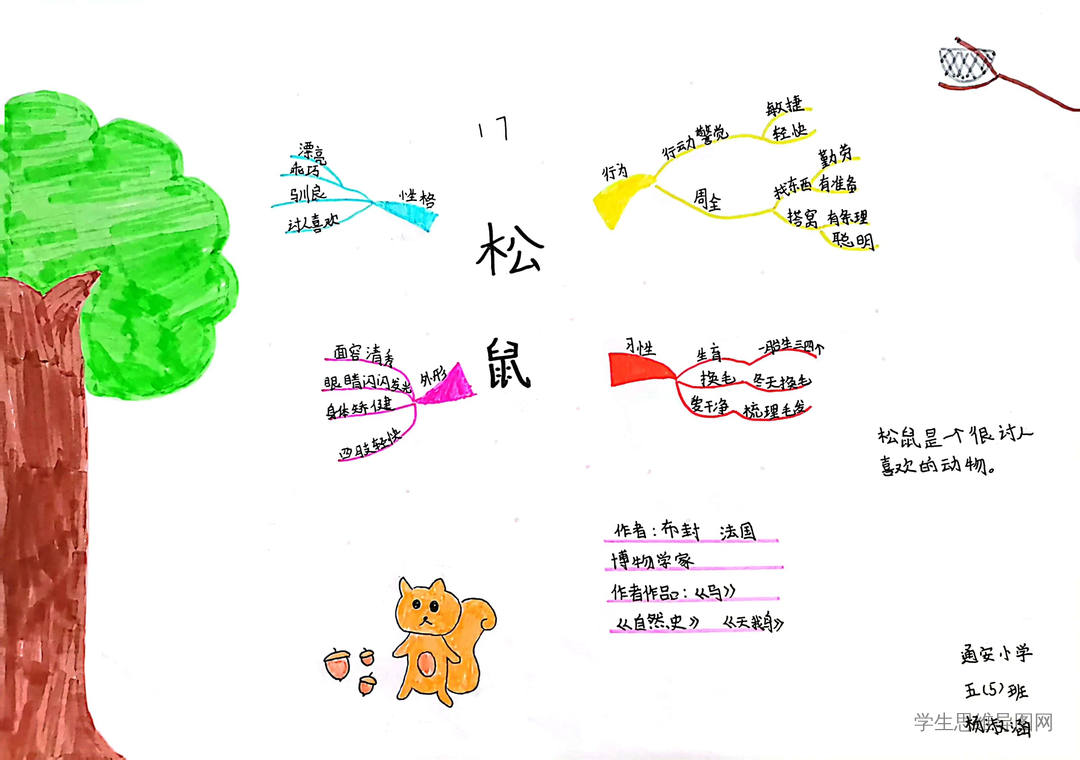 17
松
鼠
性格
漂亮
乖巧
驯良
讨人喜欢
行为
行动 警觉
敏捷
轻快
周全
找东西
勤劳
有准备
搭窝
有条理
聪明
外形
面容清秀
眼睛闪闪发光
身体矫健
四肢轻快
习性
生育
一胎生三四个
换毛
冬天换毛
爱干净
梳理毛发
松鼠是一个很讨人
喜欢的动物。
作者:布封 法国
博物学家
作者作品:《马》
《自然史》 《天鹅》
通安小学
五(5)班
学生思维导图网